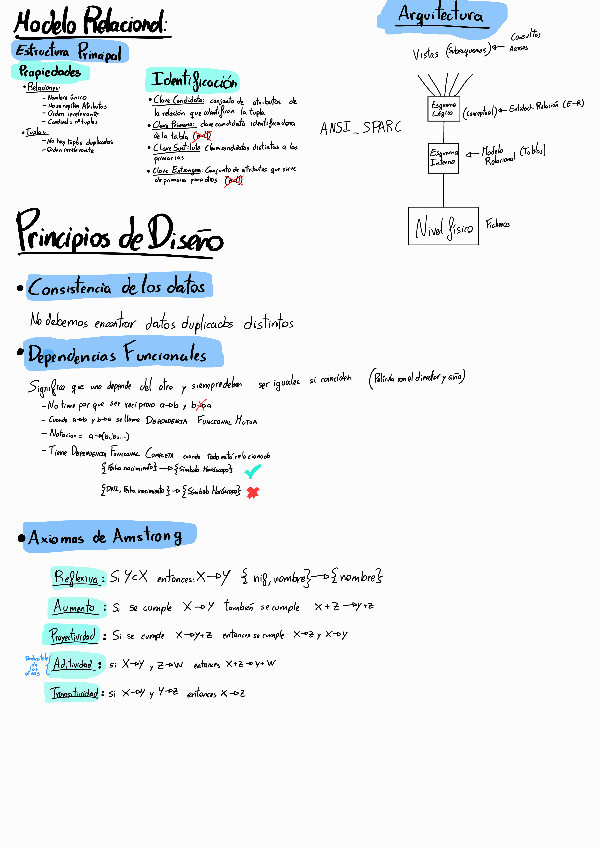 Modelo Relacional:
Estructura Principal
Propiedades
• Relaciones:
- Nombre único
- No se repiten Atributos
- Orden irrelevante
- Cardinals Multiples
• Tuplas:
- No hay tuplas duplicadas
- Orden irrelevante
Identificación
• Clave Candidata: conjunto de atributos de
la relación que identifican la tupla
• Clave Primaria: clave candidata identificadora
de la tabla (null)
• Clave Sustituta: claves candidatas distintas a las
primarias
• Clave Extranjera: Conjunto de atributos que sirve
de primaria para otros (null)
Arquitectura
Vistas (Subesquemas) ← Consultas
Accesos
ANSI_SPARC
Esquema
Lógico
(Conceptual) ← Entidad-Relación (E-R)
Esquema
Interno
← Modelo
Relacional (Tablas)
Nivel físico
Ficheros
Principios de Diseño
• Consistencia de los datos
No debemos encontrar datos duplicados distintos
• Dependencias Funcionales
Significa que uno depende del otro y siempre deben ser iguales si coinciden (Película con el director y año)
- No tiene por que ser recíproco a→b y b→a
- Cuando a→b y b→a se llama DEPENDENCIA FUNCIONAL MUTUA
- Notación = a→{b,b₂...}
- Tiene DEPENDENCIA FUNCIONAL COMPLETA cuando todo está relacionado
{Fecha nacimiento} → {Símbolo Horóscopo} ✓
{DNI, Fecha nacimiento} → {Símbolo Horóscopo} ✗
• Axiomas de Amstrong
Reflexiva: Si Y⊂X entonces: X→Y {nif, nombre} → {nombre}
Aumento: Si se cumple X→Y también se cumple X+Z→Y+Z
Proyectividad: Si se cumple X→Y+Z entonces se cumple X→Z y X→Y
Aditividad: si X→Y y Z→W entonces X+Z→Y+W
Transitividad: si X→Y y Y→Z entonces X→Z